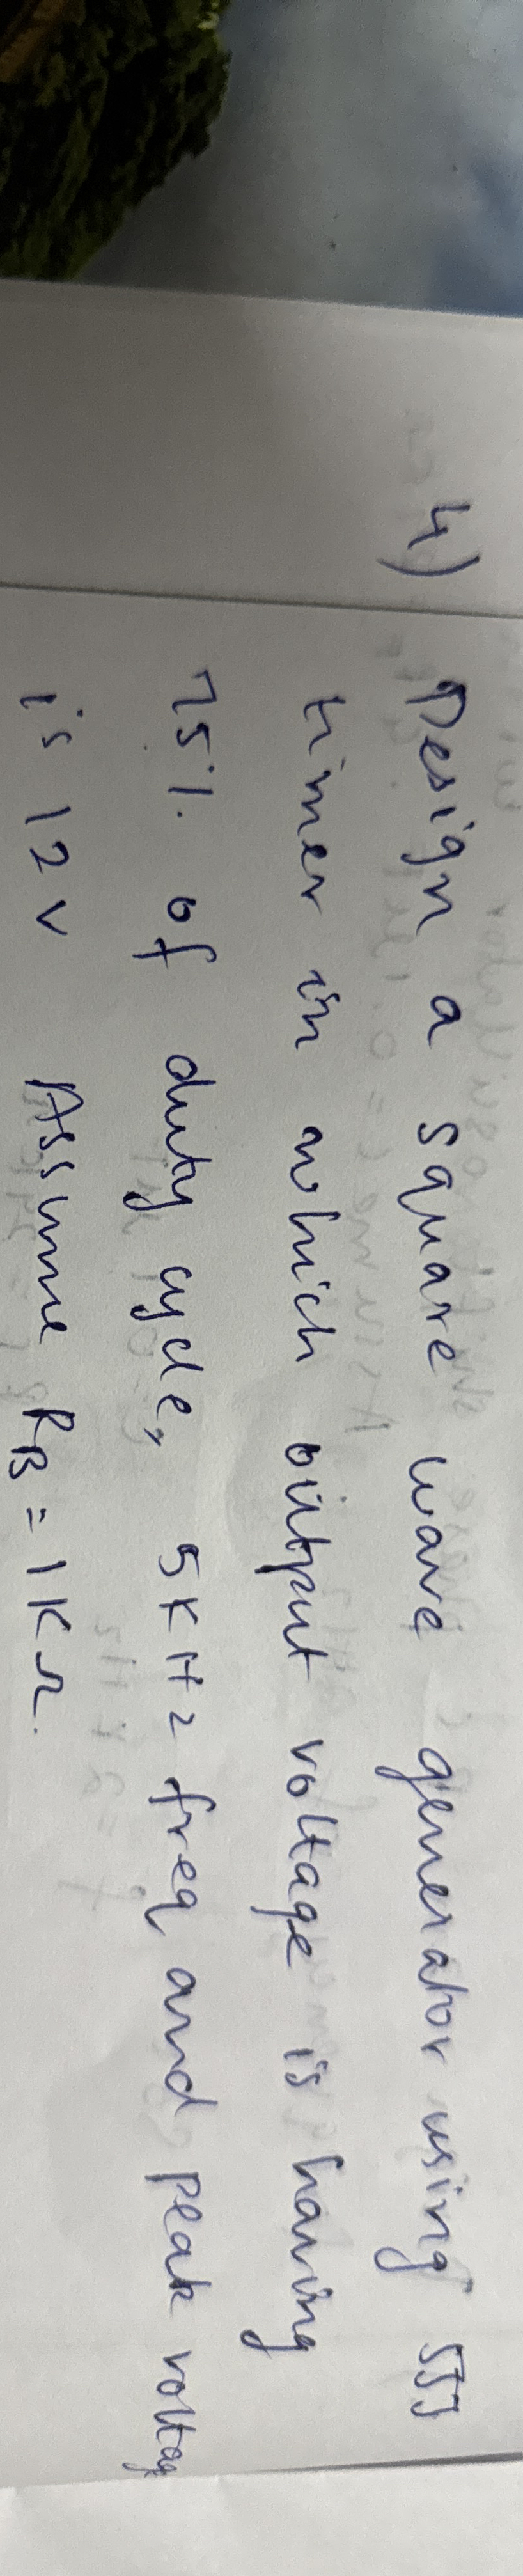 4) Design a square wave generator using 555
timer in which output voltage is having
75% of duty cycle, 5KHz freq and peak voltage
is 12v Assume RB = 1KΩ.